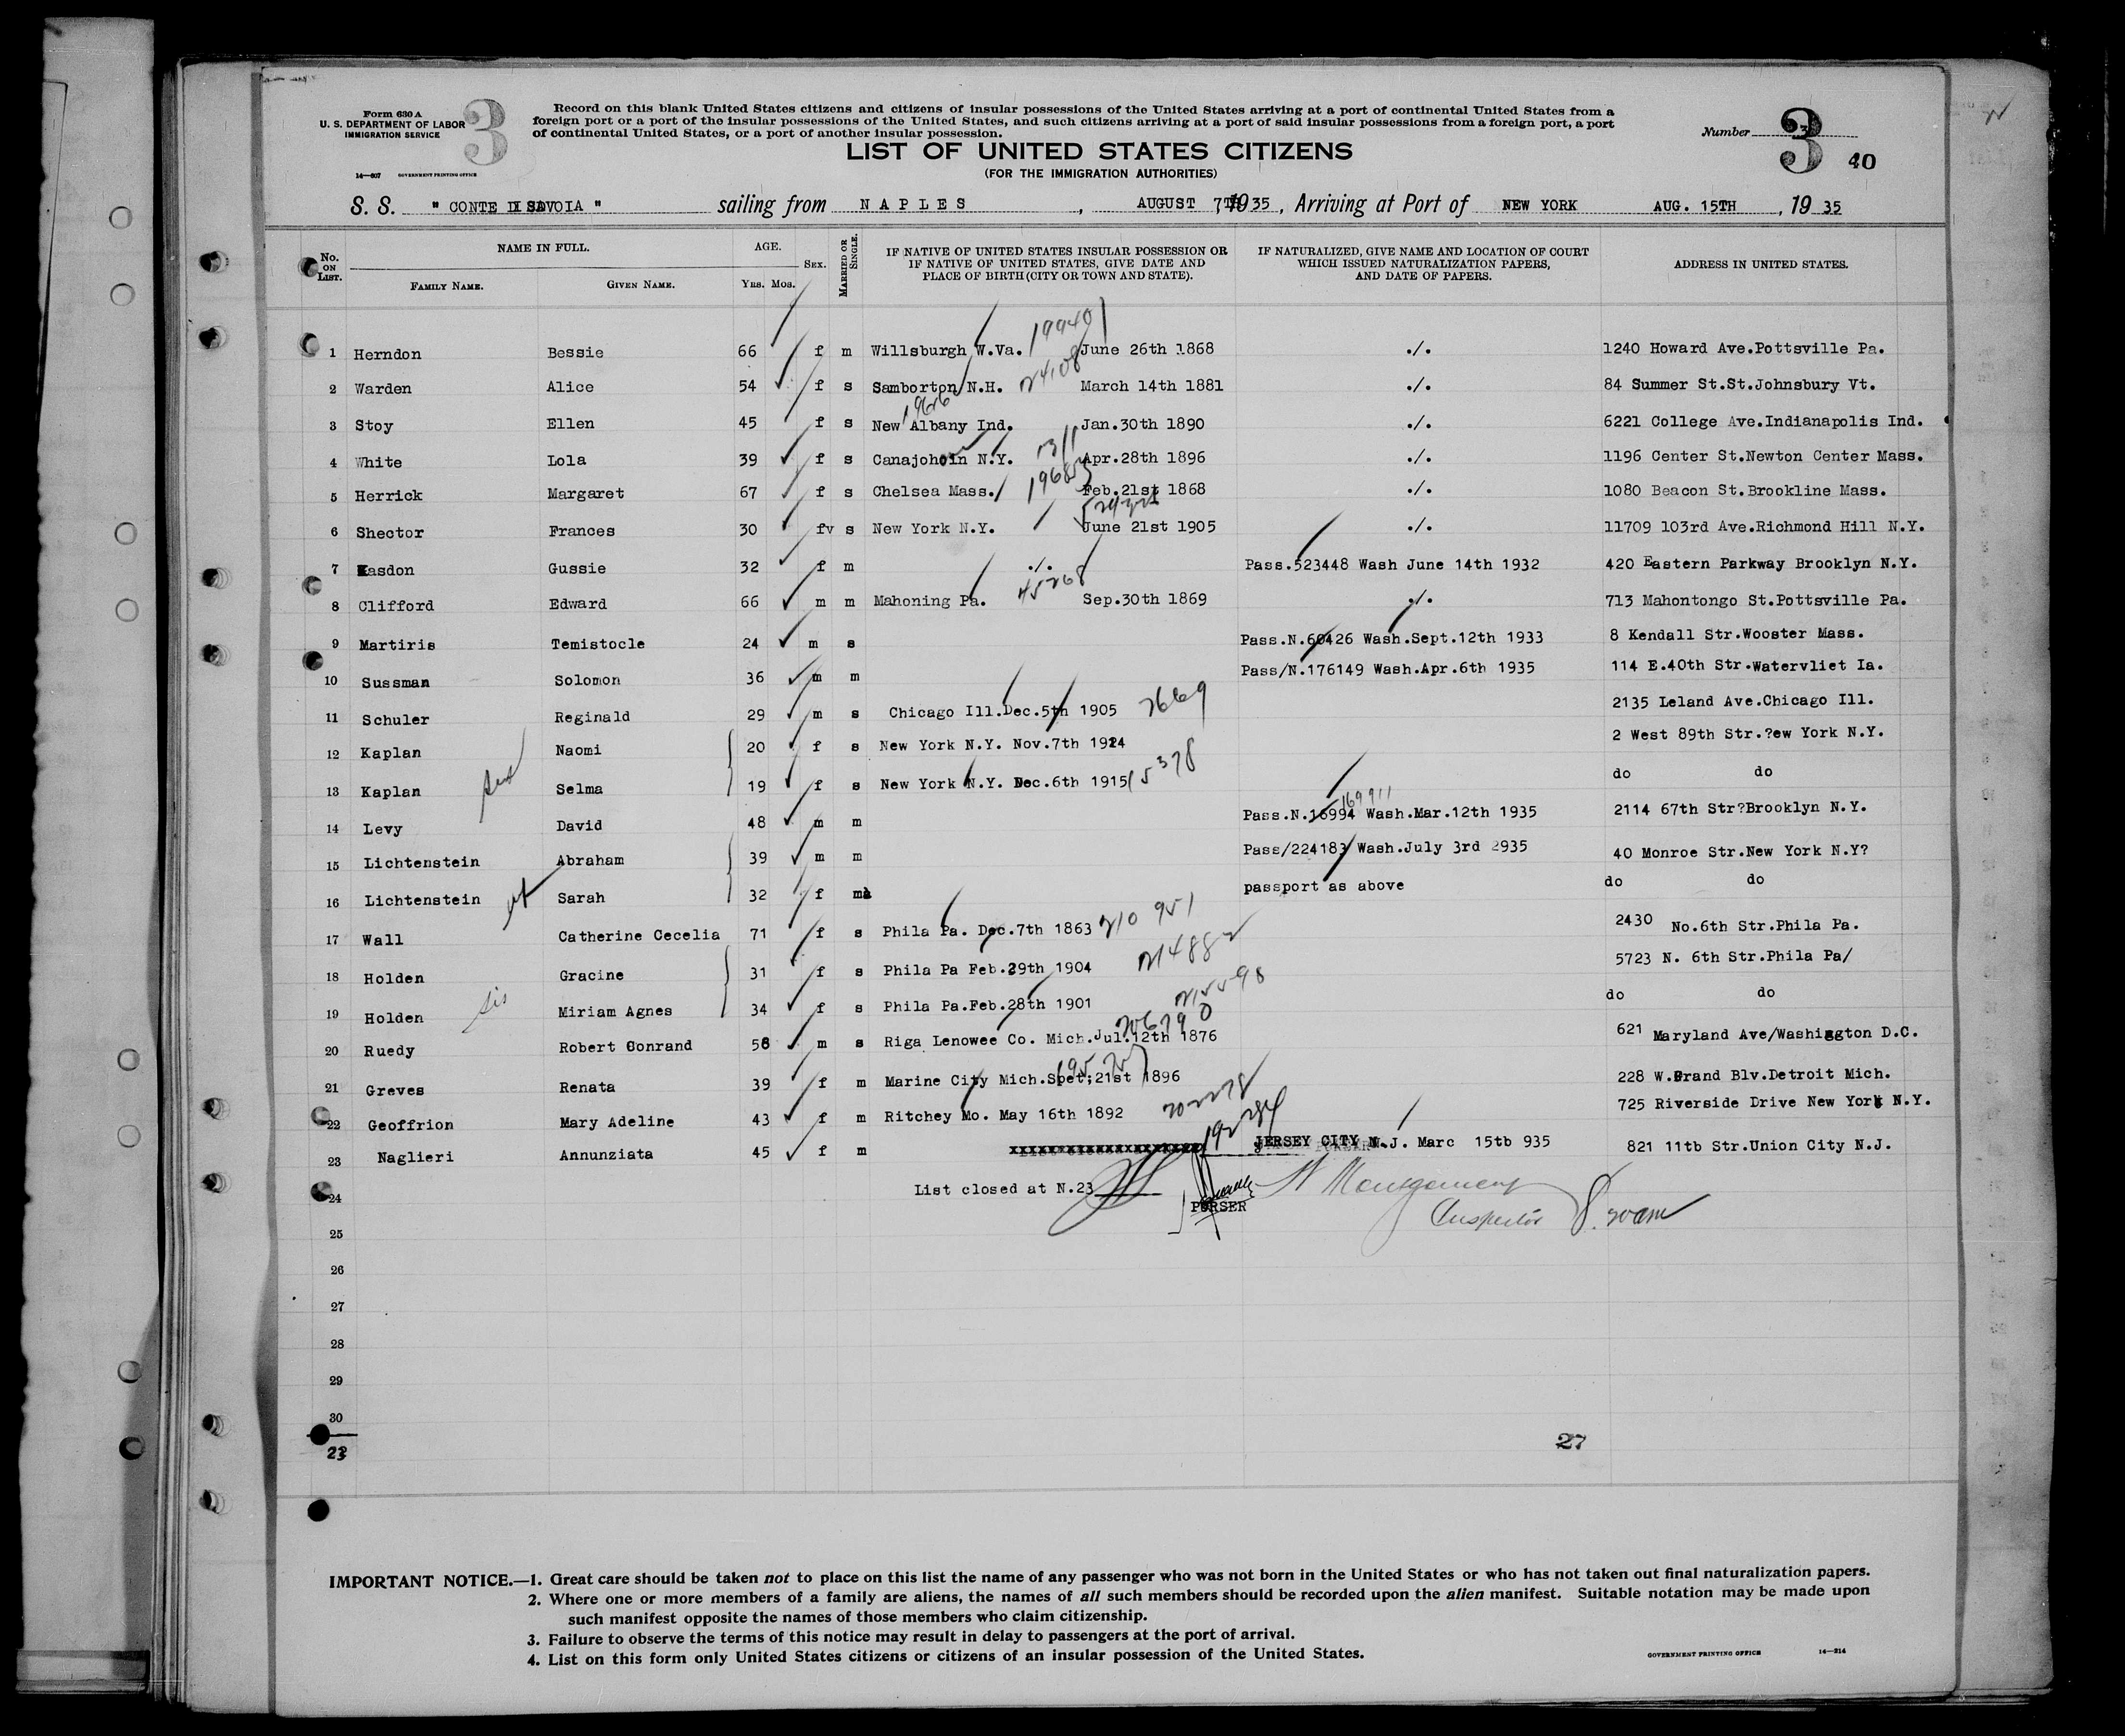 Form 630 A
U. S. DEPARTMENT OF LABOR
IMMIGRATION SERVICE
3
14—607 GOVERNMENT PRINTING OFFICE
Record on this blank United States citizens and citizens of insular possessions of the United States arriving at a port of continental United States from a
foreign port or a port of the insular possessions of the United States, and such citizens arriving at a port of said insular possessions from a foreign port, a port
of continental United States, or a port of another insular possession.
Number 3
40
LIST OF UNITED STATES CITIZENS
(FOR THE IMMIGRATION AUTHORITIES)
S. S. " CONTE DI SAVOIA " sailing from NAPLES, AUGUST 7TH 1935, Arriving at Port of NEW YORK AUG. 15TH, 19 35
No. ON LIST. NAME IN FULL. AGE. SEX. MARRIED OR SINGLE. IF NATIVE OF UNITED STATES INSULAR POSSESSION OR IF NATIVE OF UNITED STATES, GIVE DATE AND PLACE OF BIRTH (CITY OR TOWN AND STATE). IF NATURALIZED, GIVE NAME AND LOCATION OF COURT WHICH ISSUED NATURALIZATION PAPERS, AND DATE OF PAPERS. ADDRESS IN UNITED STATES.
FAMILY NAME. GIVEN NAME. YRS. MOS.
1 Herndon Bessie 66 f m Willsburgh W.Va. 199401 June 26th 1868 ./. 1240 Howard Ave.Pottsville Pa.
2 Warden Alice 54 f s Samborton N.H. 24108 March 14th 1881 ./. 84 Summer St.St.Johnsbury Vt.
3 Stoy Ellen 45 f s New Albany Ind. Jan.30th 1890 ./. 6221 College Ave.Indianapolis Ind.
4 White Lola 39 f s Canajohoin N.Y. Apr.28th 1896 ./. 1196 Center St.Newton Center Mass.
5 Herrick Margaret 67 f s Chelsea Mass. Feb.21st 1868 ./. 1080 Beacon St.Brookline Mass.
6 Shector Frances 30 fv s New York N.Y. June 21st 1905 ./. 11709 103rd Ave.Richmond Hill N.Y.
7 Kasdon Gussie 32 f m ./. Pass.523448 Wash June 14th 1932 420 Eastern Parkway Brooklyn N.Y.
8 Clifford Edward 66 m m Mahoning Pa. 45268 Sep.30th 1869 ./. 713 Mahontongo St.Pottsville Pa.
9 Martiris Temistocle 24 m s Pass.N.60426 Wash.Sept.12th 1933 8 Kendall Str.Wooster Mass.
10 Sussman Solomon 36 m m Pass/N.176149 Wash.Apr.6th 1935 114 E.40th Str.Watervliet Ia.
11 Schuler Reginald 29 m s Chicago Ill.Dec.5th 1905 7669 2135 Leland Ave.Chicago Ill.
12 Kaplan Naomi 20 f s New York N.Y. Nov.7th 1914 2 West 89th Str.?ew York N.Y.
13 Kaplan Selma 19 f s New York N.Y. Dec.6th 1915 15378 do do
14 Levy David 48 m m Pass.N.16994 169911 Wash.Mar.12th 1935 2114 67th Str?Brooklyn N.Y.
15 Lichtenstein Abraham 39 m m Pass/224183 Wash.July 3rd 2935 40 Monroe Str.New York N.Y?
16 Lichtenstein Sarah 32 f m passport as above do do
17 Wall Catherine Cecelia 71 f s Phila Pa. Dec.7th 1863 210 951 2430 No.6th Str.Phila Pa.
18 Holden Gracine 31 f s Phila Pa Feb.29th 1904 214882 5723 N. 6th Str.Phila Pa/
19 Holden sis Miriam Agnes 34 f s Phila Pa.Feb.28th 1901 215598 do do
20 Ruedy Robert Conrand 58 m s Riga Lenowee Co. Mich.Jul.12th 1876 206790 621 Maryland Ave/Washiggton D.C.
21 Greves Renata 39 f m Marine City Mich.Spet;21st 1896 228 W.Grand Blv.Detroit Mich.
22 Geoffrion Mary Adeline 43 f m Ritchey Mo. May 16th 1892 202278 725 Riverside Drive New York N.Y.
23 Naglieri Annunziata 45 f m xxxxxxxxxxxxxxxxxxxxxx JERSEY CITY N.J. Marc 15tb 935 821 11tb Str.Union City N.J.
24 List closed at N.23 PURSER H Montgomery
25 Inspector 8.20am
26
27
28
29
30
23
27
IMPORTANT NOTICE.—1. Great care should be taken not to place on this list the name of any passenger who was not born in the United States or who has not taken out final naturalization papers.
2. Where one or more members of a family are aliens, the names of all such members should be recorded upon the alien manifest. Suitable notation may be made upon
such manifest opposite the names of those members who claim citizenship.
3. Failure to observe the terms of this notice may result in delay to passengers at the port of arrival.
4. List on this form only United States citizens or citizens of an insular possession of the United States.
GOVERNMENT PRINTING OFFICE 14—214